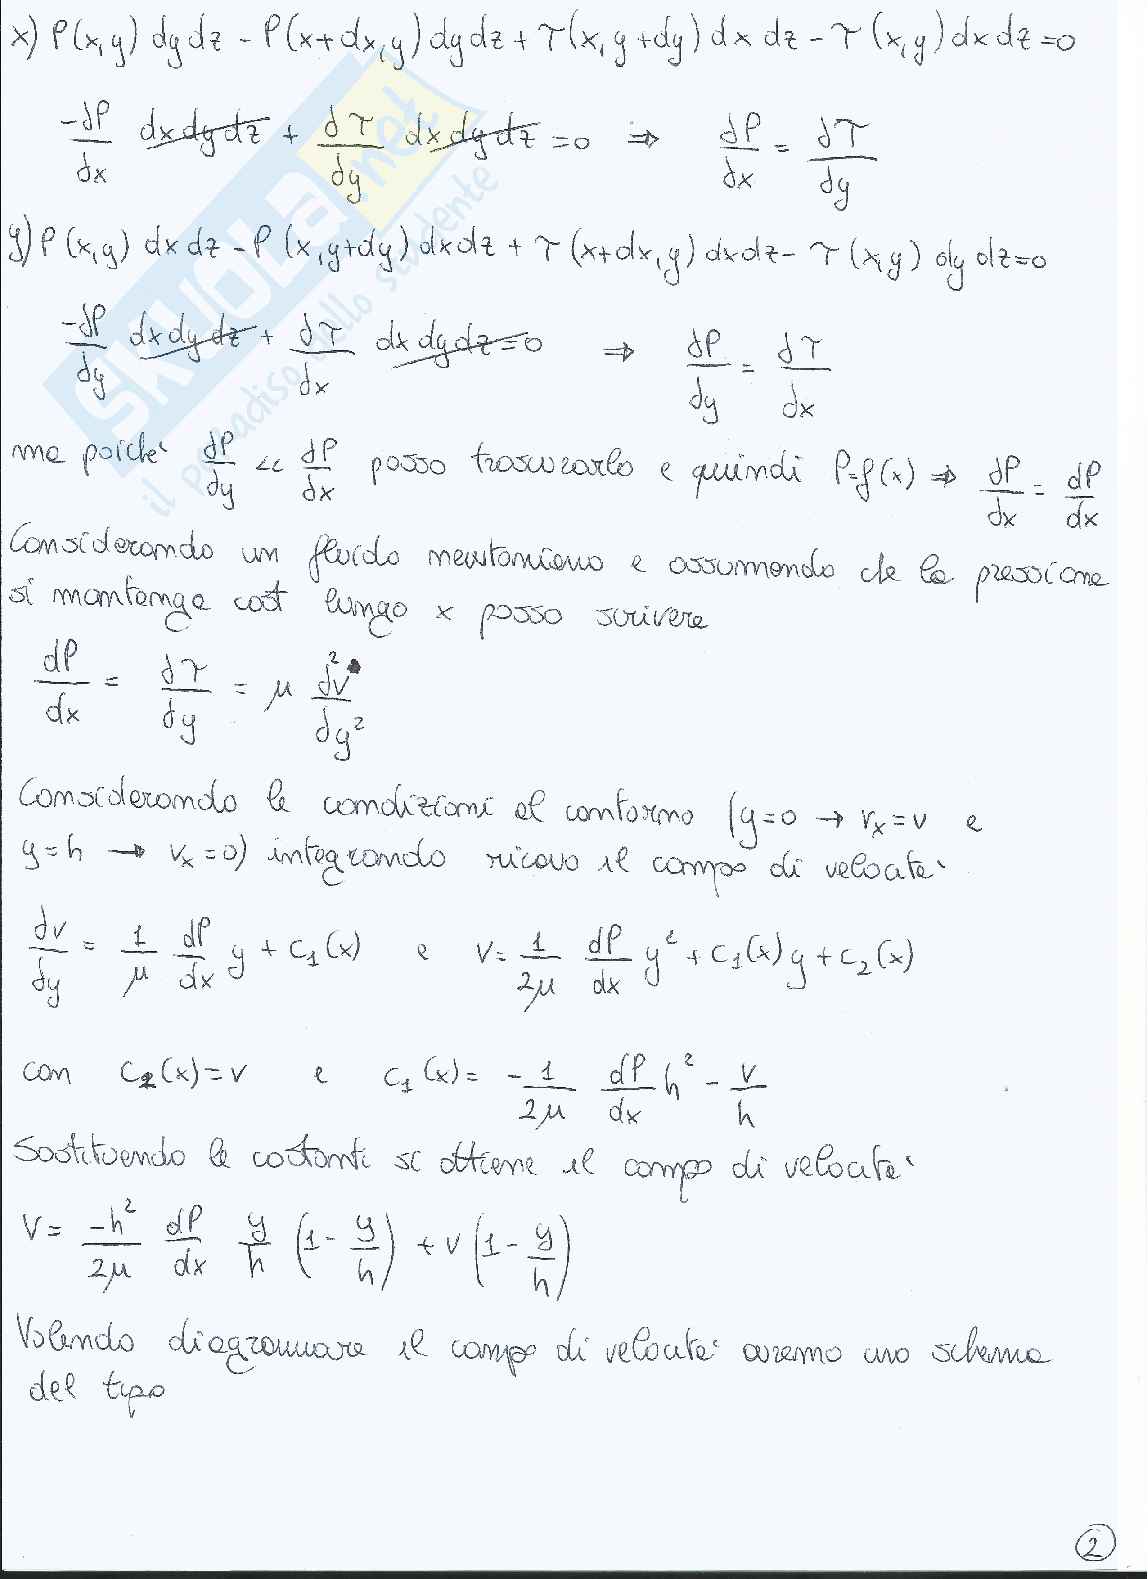 x) P(x,y) dy dz - P(x+dx,y) dy dz + τ(x,y+dy) dx dz - τ(x,y) dx dz = 0
-∂P/∂x dx dy dz + ∂τ/∂y dx dy dz = 0 ⇒ ∂P/∂x = ∂τ/∂y
y) P(x,y) dx dz - P(x,y+dy) dx dz + τ(x+dx,y) dx dz - τ(x,y) dy dz = 0
-∂P/∂y dx dy dz + ∂τ/∂x dx dy dz = 0 ⇒ ∂P/∂y = ∂τ/∂x
ma poiche' ∂P/∂y << ∂P/∂x posso trascurarlo e quindi P=f(x) ⇒ ∂P/∂x = dP/dx
Considerando un fluido newtoniano e assumendo che la pressione
si mantenga cost lungo x posso scrivere
dP/dx = ∂τ/∂y = μ ∂²v/∂y²
Considerando le condizioni al contorno (y=0 → vx=v e
y=h → vx=0) integrando ricavo il campo di velocita'
∂v/∂y = 1/μ dP/dx y + c1(x) e v = 1/2μ dP/dx y² + c1(x) y + c2(x)
con c2(x)=v e c1(x) = -1/2μ dP/dx h² - v/h
Sostituendo le costanti si ottiene il campo di velocita'
v = -h²/2μ dP/dx y/h (1 - y/h) + v (1 - y/h)
Volendo diagrammare il campo di velocita' avremo uno schema
del tipo
2
SKUOLA.net
il paradiso dello studente